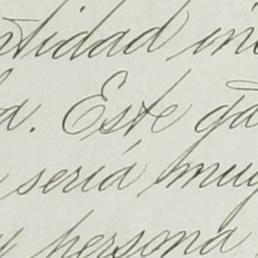 tidad in
a. Este ga
sería muy
y persona